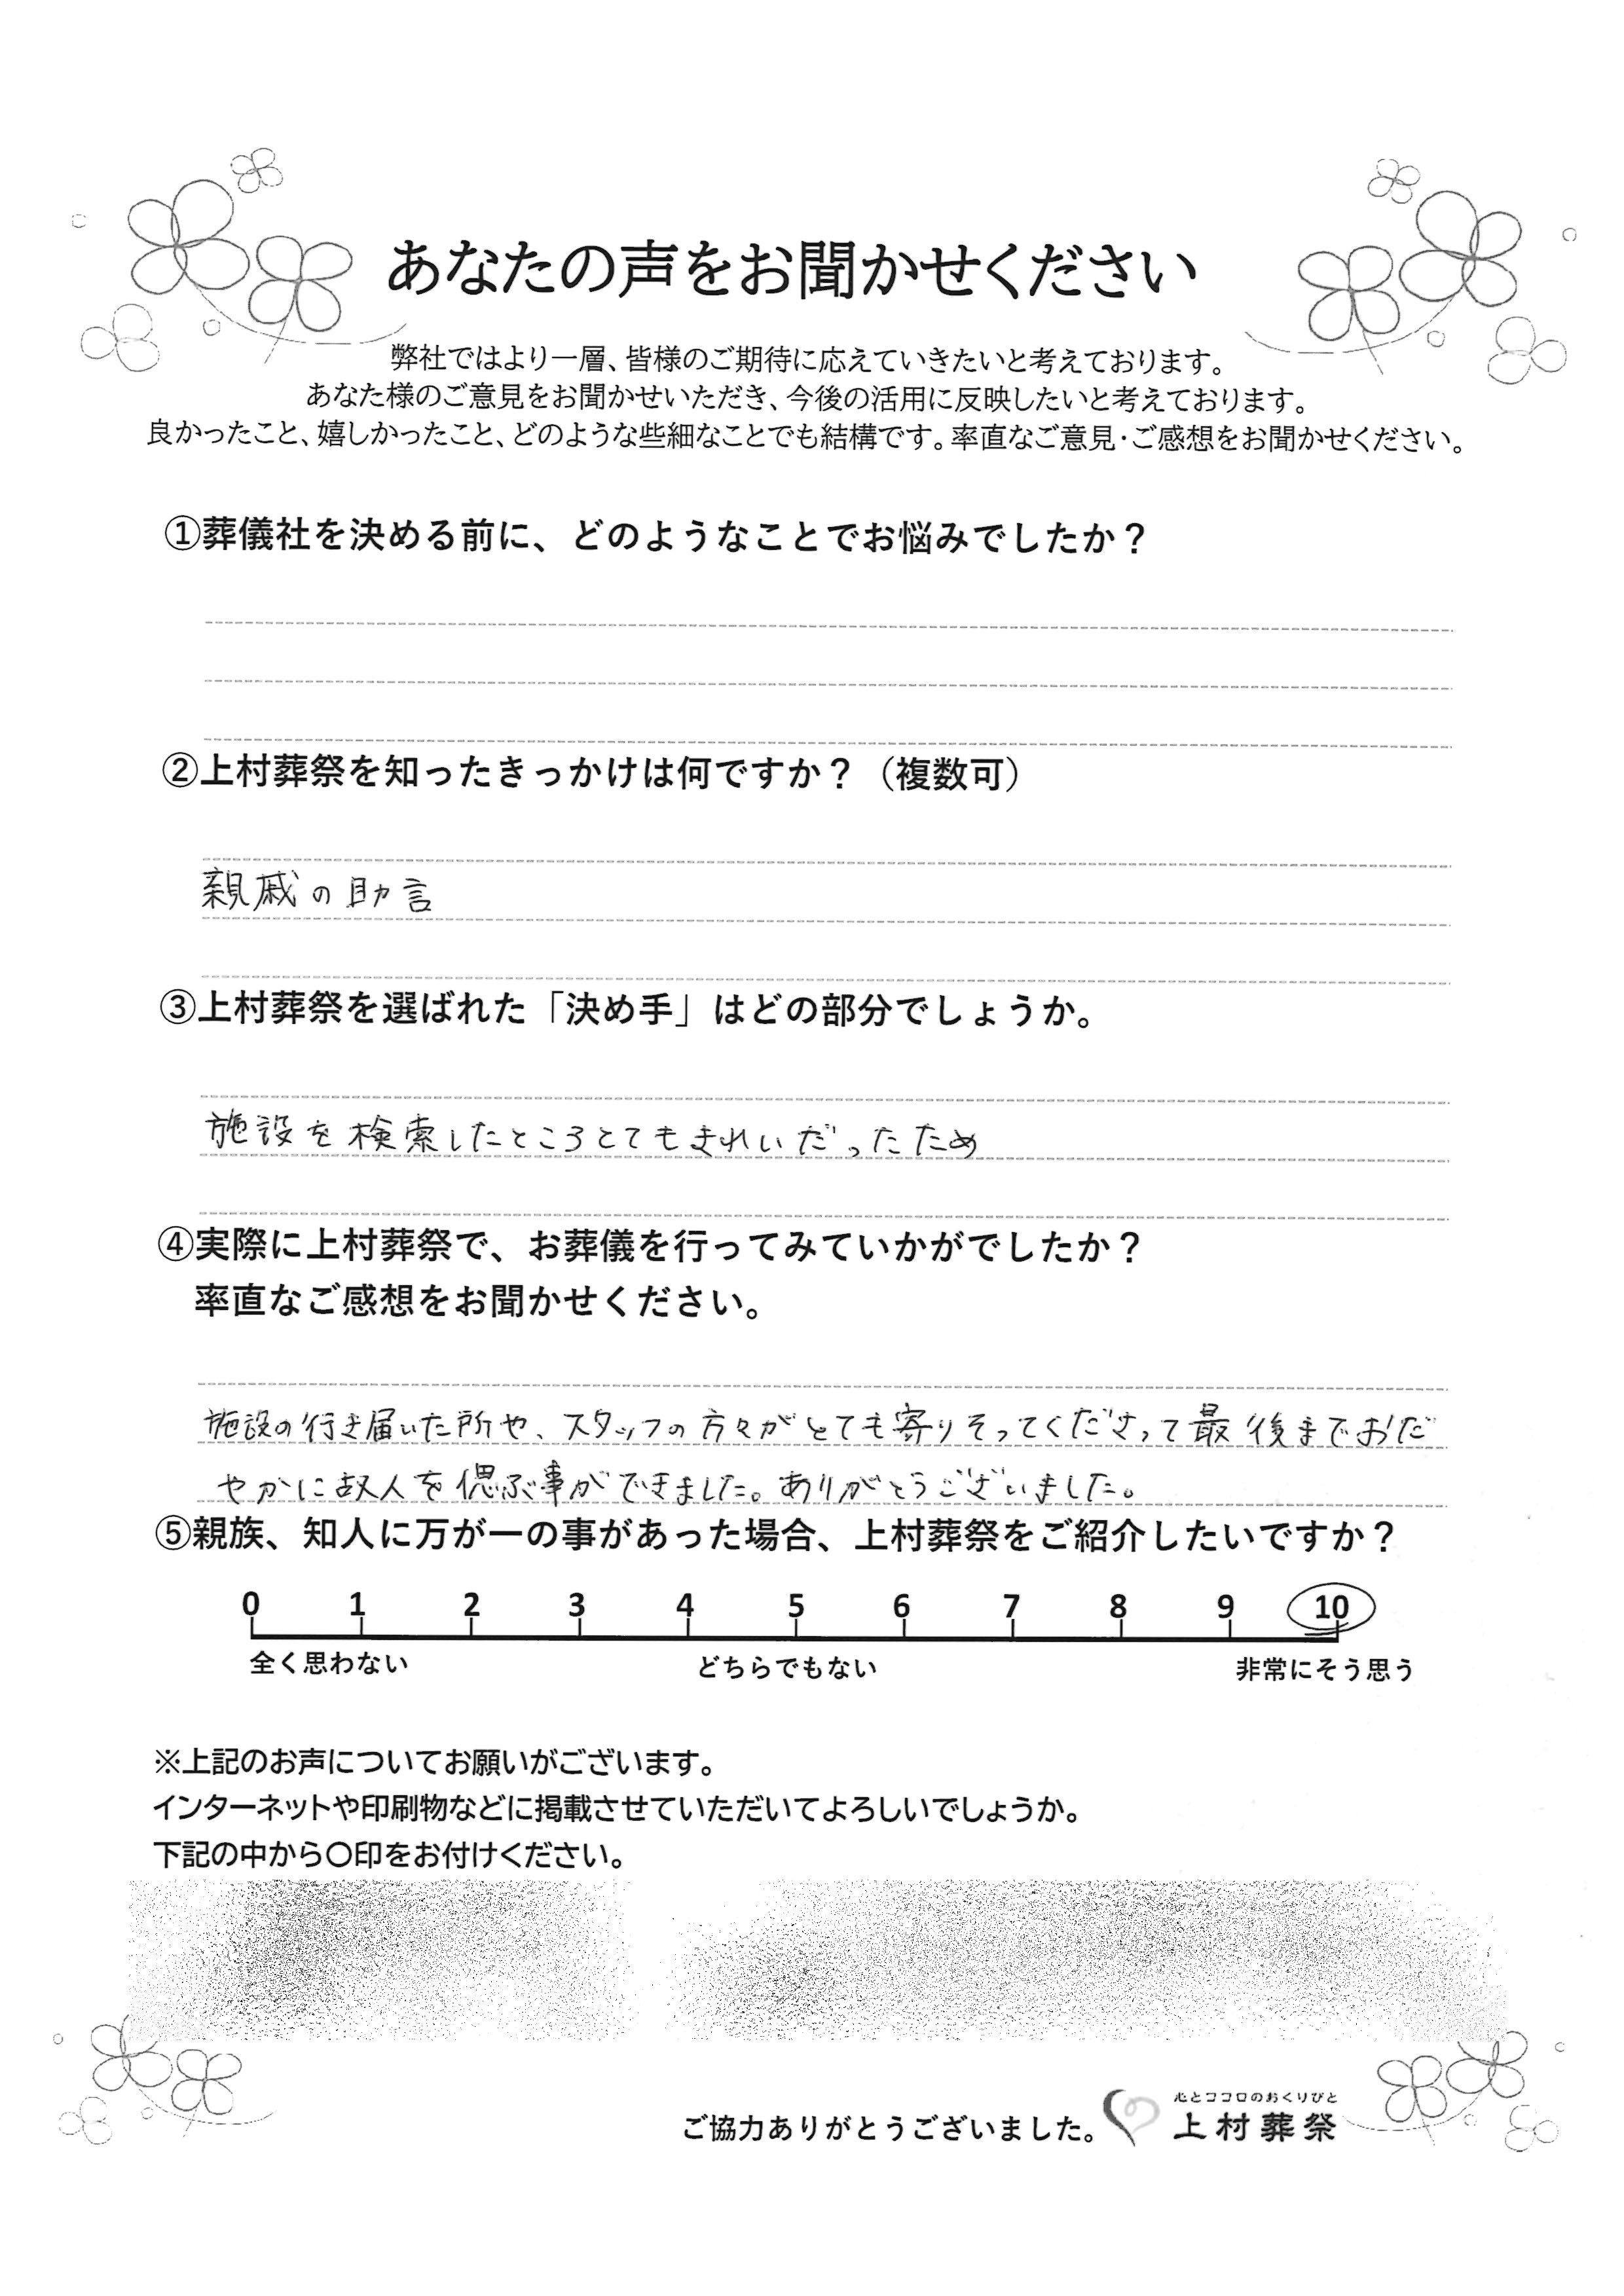 あなたの声をお聞かせください
弊社ではより一層、皆様のご期待に応えていきたいと考えております。
あなた様のご意見をお聞かせいただき、今後の活用に反映したいと考えております。
良かったこと、嬉しかったこと、どのような些細なことでも結構です。率直なご意見・ご感想をお聞かせください。
①葬儀社を決める前に、どのようなことでお悩みでしたか？
②上村葬祭を知ったきっかけは何ですか？（複数可）
親戚の助言
③上村葬祭を選ばれた「決め手」はどの部分でしょうか。
施設を検索したところとてもきれいだったため
④実際に上村葬祭で、お葬儀を行ってみていかがでしたか？
率直なご感想をお聞かせください。
施設の行き届いた所や、スタッフの方々がとても寄りそってくださって最後までおだ
やかに故人を偲ぶ事ができました。ありがとうございました。
⑤親族、知人に万が一の事があった場合、上村葬祭をご紹介したいですか？
0 1 2 3 4 5 6 7 8 9 10
全く思わない どちらでもない 非常にそう思う
※上記のお声についてお願いがございます。
インターネットや印刷物などに掲載させていただいてよろしいでしょうか。
下記の中から〇印をお付けください。
心とココロのおくりびと
ご協力ありがとうございました。 上村葬祭